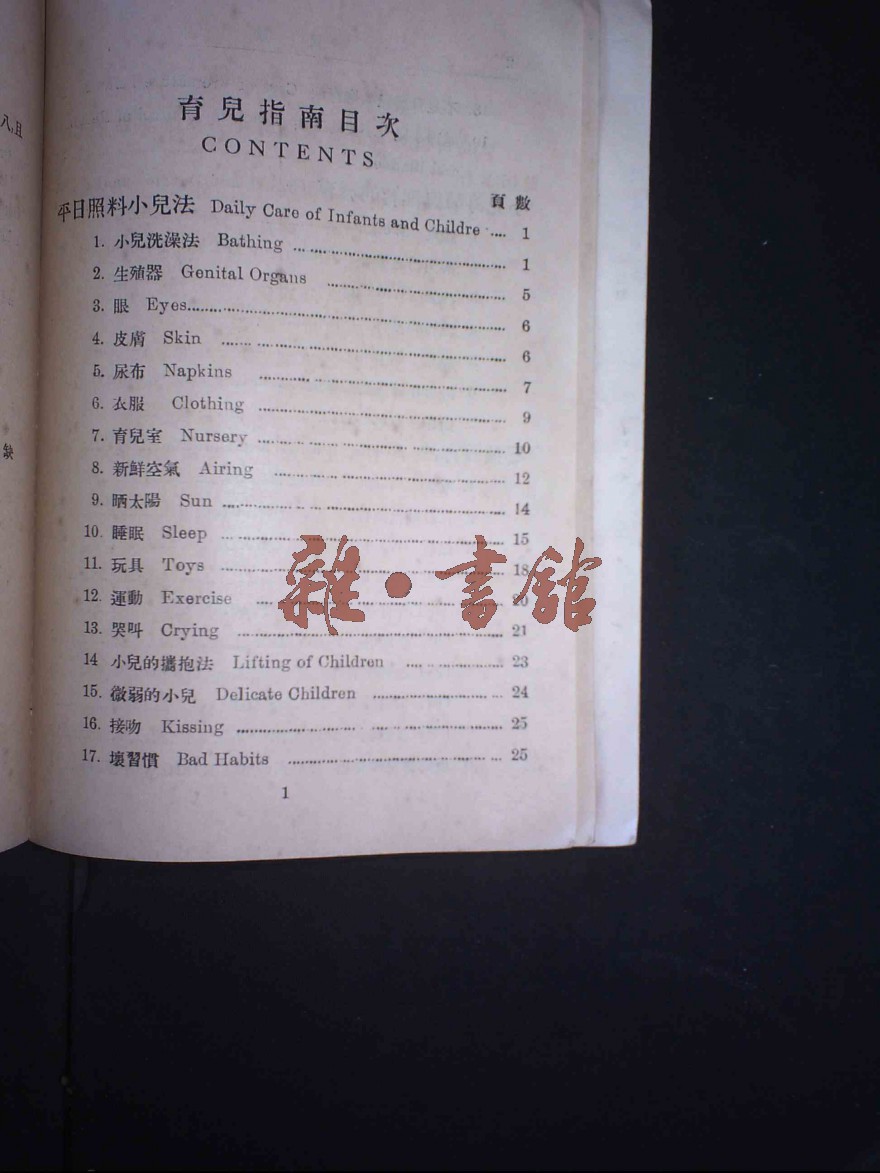 八,且
缺
育兒指南目次
CONTENTS
頁數
平日照料小兒法 Daily Care of Infants and Childre .... 1
1. 小兒洗澡法 Bathing ........ 1
2. 生殖器 Genital Organs ........ 5
3. 眼 Eyes ........ 6
4. 皮膚 Skin ........ 6
5. 尿布 Napkins ........ 7
6. 衣服 Clothing ........ 9
7. 育兒室 Nursery ........ 10
8. 新鮮空氣 Airing ........ 12
9. 晒太陽 Sun ........ 14
10. 睡眠 Sleep ........ 15
11. 玩具 Toys ........ 18
12. 運動 Exercise ........ 20
13. 哭叫 Crying ........ 21
14 小兒的攜抱法 Lifting of Children ........ 23
15. 微弱的小兒 Delicate Children ........ 24
16. 接吻 Kissing ........ 25
17. 壞習慣 Bad Habits ........ 25
1
雜·書館